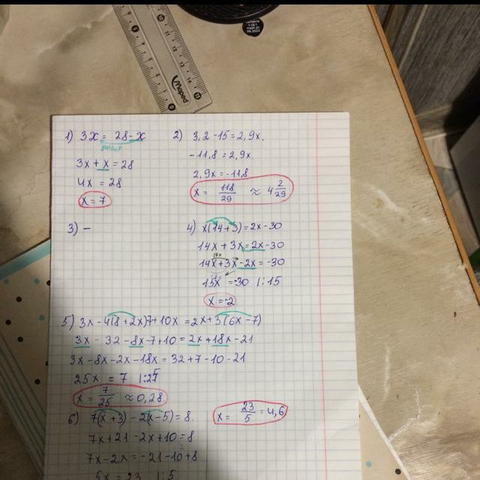 Maped
1) 3x = 28 - x
3x + x = 28
4x = 28
x = 7
2) 3,2 - 15 = 2,9x.
-11,8 = 2,9x.
2,9x = -11,8
x = 118/29 ≈ 4 2/29
3) -
4) x(14 + 3) = 2x - 30
14x + 3x = 2x - 30
14x + 3x - 2x = -30
15x = -30 | : 15
x = -2
5) 3x - 4(8 + 2x)7 + 10x = 2x + 3(6x - 7)
3x - 32 - 8x - 7 + 10 = 2x + 18x - 21
3x - 8x - 2x - 18x = 32 + 7 - 10 - 21
25x = 7 | : 25
x = 7/25 ≈ 0,28
6) 7(x + 3) - 2(x - 5) = 8.
7x + 21 - 2x + 10 = 8
7x - 2x = -21 - 10 + 8
5x = 23 | : 5
x = 23/5 = 4,6